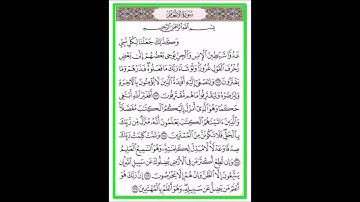 سُورَةُ الأَنْعَامِ
بِسْمِ اللَّهِ الرَّحْمَٰنِ الرَّحِيمِ
وَكَذَٰلِكَ جَعَلْنَا لِكُلِّ نَبِيٍّ
عَدُوًّا شَيَٰطِينَ ٱلْإِنسِ وَٱلْجِنِّ يُوحِى بَعْضُهُمْ إِلَىٰ بَعْضٍ
زُخْرُفَ ٱلْقَوْلِ غُرُورًا وَلَوْ شَآءَ رَبُّكَ مَا فَعَلُوهُ فَذَرْهُمْ وَمَا
يَفْتَرُونَ ١١٢ وَلِتَصْغَىٰٓ إِلَيْهِ أَفْـِٔدَةُ ٱلَّذِينَ لَا يُؤْمِنُونَ بِٱلْـَٔاخِرَةِ
وَلِيَرْضَوْهُ وَلِيَقْتَرِفُوا۟ مَا هُم مُّقْتَرِفُونَ ١١٣ أَفَغَيْرَ ٱللَّهِ أَبْتَغِى
حَكَمًا وَهُوَ ٱلَّذِىٓ أَنزَلَ إِلَيْكُمُ ٱلْكِتَٰبَ مُفَصَّلًا
وَٱلَّذِينَ ءَاتَيْنَٰهُمُ ٱلْكِتَٰبَ يَعْلَمُونَ أَنَّهُۥ مُنَزَّلٌ مِّن رَّبِّكَ
بِٱلْحَقِّ فَلَا تَكُونَنَّ مِنَ ٱلْمُمْتَرِينَ ١١٤ وَتَمَّتْ كَلِمَتُ رَبِّكَ
صِدْقًا وَعَدْلًا لَّا مُبَدِّلَ لِكَلِمَٰتِهِۦ وَهُوَ ٱلسَّمِيعُ ٱلْعَلِيمُ
١١٥ وَإِن تُطِعْ أَكْثَرَ مَن فِى ٱلْأَرْضِ يُضِلُّوكَ عَن سَبِيلِ ٱللَّهِ إِن
يَتَّبِعُونَ إِلَّا ٱلظَّنَّ وَإِنْ هُمْ إِلَّا يَخْرُصُونَ ١١٦ إِنَّ رَبَّكَ هُوَ
أَعْلَمُ مَن يَضِلُّ عَن سَبِيلِهِۦ وَهُوَ أَعْلَمُ بِٱلْمُهْتَدِينَ ١١٧